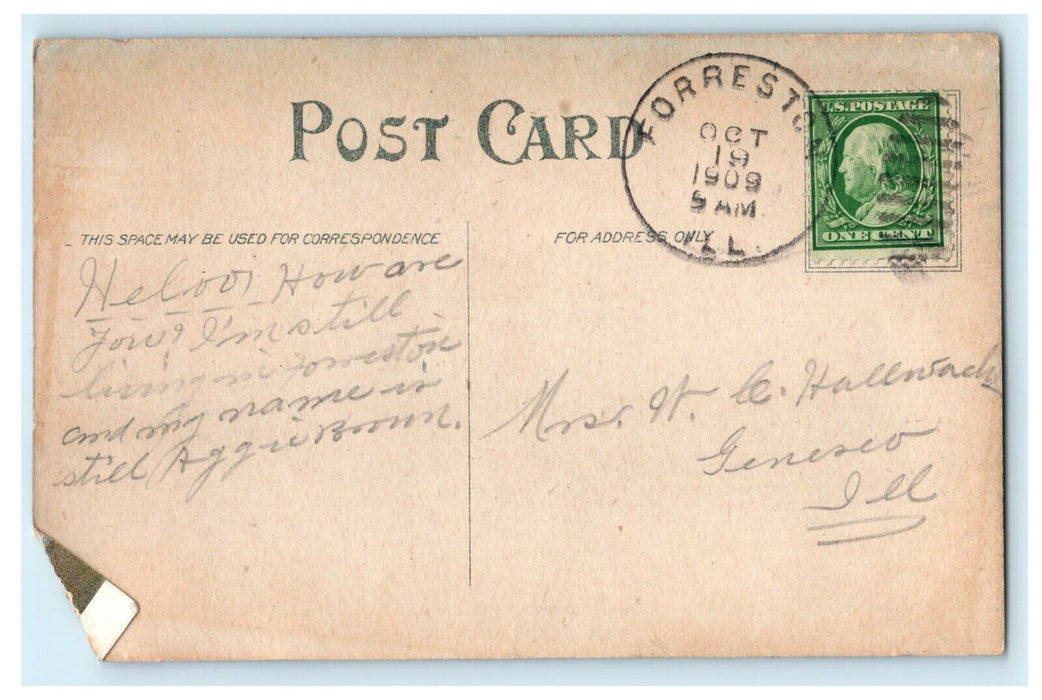 POST CARD
FORRESTON
OCT
19
1909
9 AM
ILL.
U.S. POSTAGE
ONE CENT
THIS SPACE MAY BE USED FOR CORRESPONDENCE
FOR ADDRESS ONLY
Heloo! How are
You? I'm still
living in Forreston
and my name is
still Aggie Brown.
Mrs. W. C. Hallwachs
Geneseo
Ill